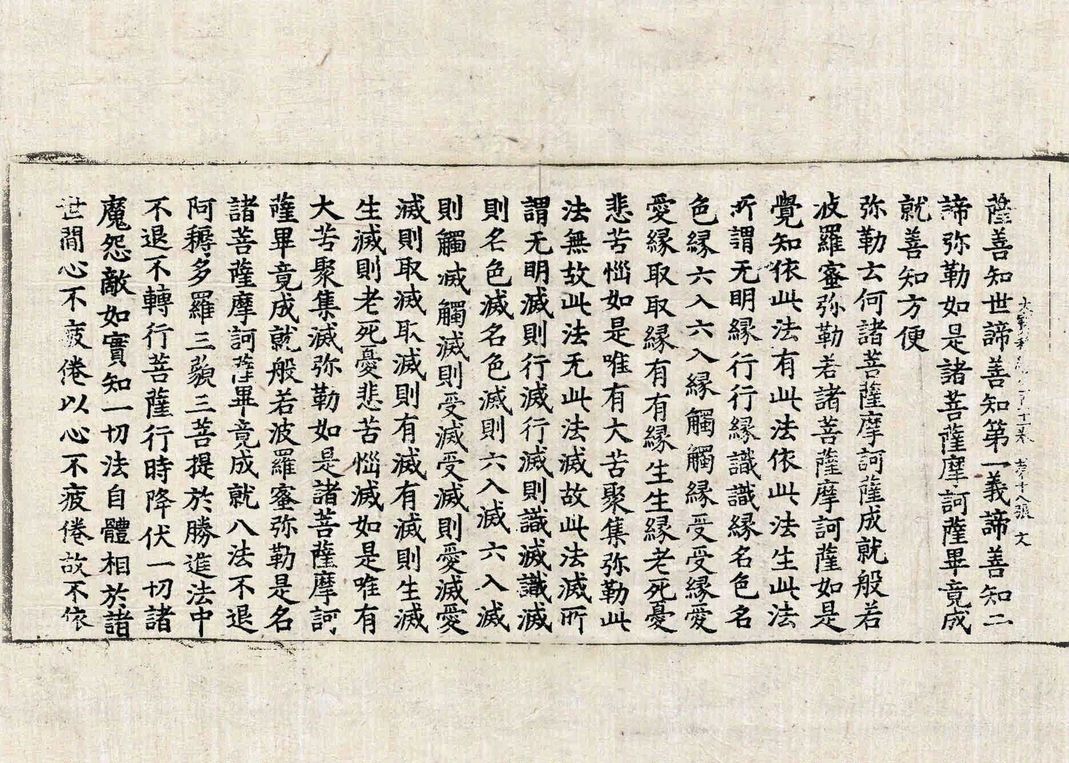 薩善知世諦善知第一義諦善知二
十八張 文
諦弥勒如是諸菩薩摩訶薩畢竟成
就善知方便
弥勒云何諸菩薩摩訶薩成就般若
波羅蜜弥勒若諸菩薩摩訶薩如是
覺知依此法有此法依此法生此法
所謂无明縁行行縁識識縁名色名
色縁六入六入縁觸觸縁受受縁愛
愛縁取取縁有有縁生生縁老死憂
悲苦惱如是唯有大苦聚集弥勒此
法無故此法无此法滅故此法滅所
謂无明滅則行滅行滅則識滅識滅
則名色滅名色滅則六入滅六入滅
則觸滅觸滅則受滅受滅則愛滅愛
滅則取滅取滅則有滅有滅則生滅
生滅則老死憂悲苦惱滅如是唯有
大苦聚集滅弥勒如是諸菩薩摩訶
薩畢竟成就般若波羅蜜弥勒是名
諸菩薩摩訶薩畢竟成就八法不退
阿耨多羅三藐三菩提於勝進法中
不退不轉行菩薩行時降伏一切諸
魔怨敵如實知一切法自體相於諸
世間心不疲倦以心不疲倦故不依